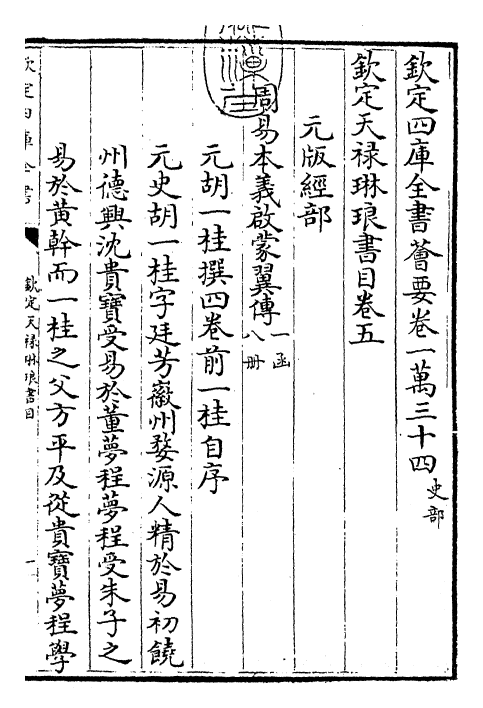 欽定四庫全書薈要卷一萬三千四 史部
欽定天祿琳琅書目卷五
元版經部
周易本義啟蒙翼傳 一函八册
元胡一桂撰四卷前一桂自序
元史胡一桂字廷芳徽州婺源人精於易初饒
州德興沈貴寶受易於董夢程夢程受朱子之
易於黃幹而一桂之父方平及從貴寶夢程學
欽定四庫全書
欽定天祿琳琅書目
一